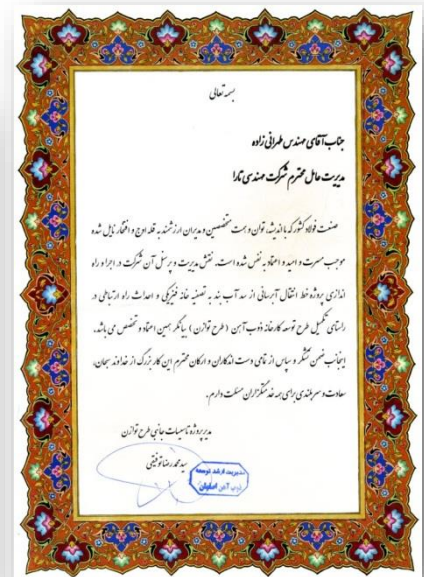 بسمه تعالی
جناب آقای مهندس طهرانی زاده
مدیریت عامل محترم شرکت مهندسی تارا
صنعت فولاد کشور که با اندیشه، توان و همت متخصصین و مدیران ارزشمند به قله اوج و افتخار نایل شده
موجب مسرت و امید و اعتماد به نفس شده است. نقش مدیریت و پرسنل آن شرکت در اجرا و راه
اندازی پروژه خط انتقال آبرسانی از سد آب بند به تصفیه خانه فیزیکی و احداث راه ارتباطی در
راستای تکمیل طرح توسعه کارخانه ذوب آهن ( طرح توازن ) بیانگر همین اعتماد و تخصص می باشد.
اینجانب ضمن تشکر و سپاس از تمامی دست اندکاران و ارکان محترم این کار بزرگ از خداوند سبحان،
سعادت و سربلندی برای همه خدمتگزاران مسئلت دارم.
مدیر پروژه تاسیسات جانبی طرح توازن
سید محمد رضا توفیقی
مدیریت ارشد توسعه
ذوب آهن اصفهان